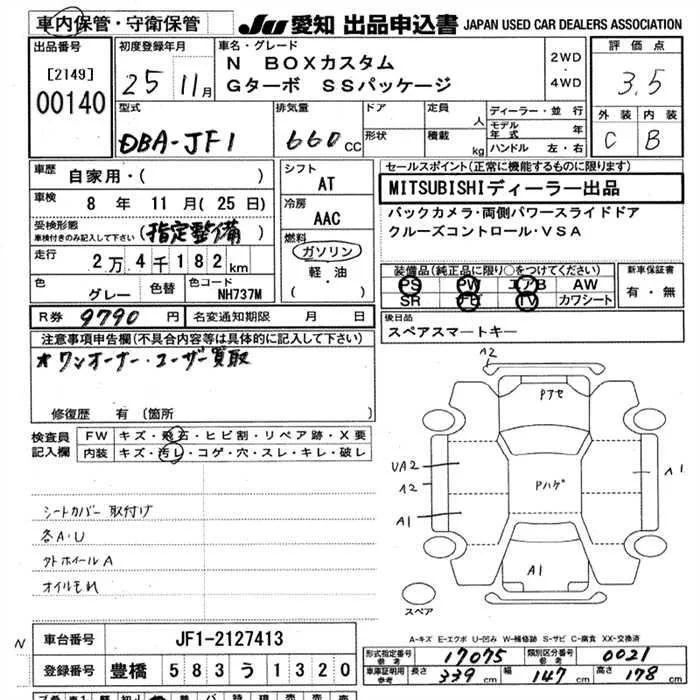 車内保管・守衛保管 JU 愛知 出品申込書 JAPAN USED CAR DEALERS ASSOCIATION
出品番号
[2149]
00140
初度登録年月
25 11月
車名・グレード
N BOXカスタム
Gターボ SSパッケージ
2WD
・
4WD
評価点
3.5
外装 内装
C B
型式
DBA-JF1
排気量
660 CC
ドア
形状
定員 人
積載 kg
ディーラー・並行
モデル年式 年
ハンドル 左・右
車歴
自家用・( )
車検 8 年 11 月(25 日)
受検形態
車検付きのみ記入して下さい (指定整備)
走行 2万4千182km
色 グレー 色替 色コード NH737M
シフト
AT
冷房
AAC
燃料
ガソリン
軽・油
( )
セールスポイント(正常に機能するものに限ります)
MITSUBISHIディーラー出品
バックカメラ・両側パワースライドドア
クルーズコントロール・VSA
装備品(純正品に限り○をつけてください)
PS PW エアB AW
SR ナビ TV カワシート
新車保証書
有・無
R券 9790 円 名変通知期限 月 日
後日品
スペアスマートキー
注意事項申告欄(不具合内容等は具体的に記入して下さい)
*ワンオーナー・ユーザー買取
修復歴 有(箇所
検査員
記入欄
FW キズ・飛石・ヒビ割・リペア跡・X要
内装 キズ・汚レ・コゲ・穴・スレ・キレ・破レ
シートカバー取付け
各A・U
タトホイールA
オイルモレ
A2
Pアセ
UA2
A2
Pハゲ
A1
A1
A1
スペア
A-キズ E-エクボ U-凹み W-補修跡 S-サビ C-腐食 XX-交換済
N
車台番号 JF1-2127413
登録番号 豊橋 583う1320
形式指定番号
参考 17075
類別区分番号
参考 0021
車庫証明用
参考 長さ 339 cm 幅 147 cm 高さ 178 cm